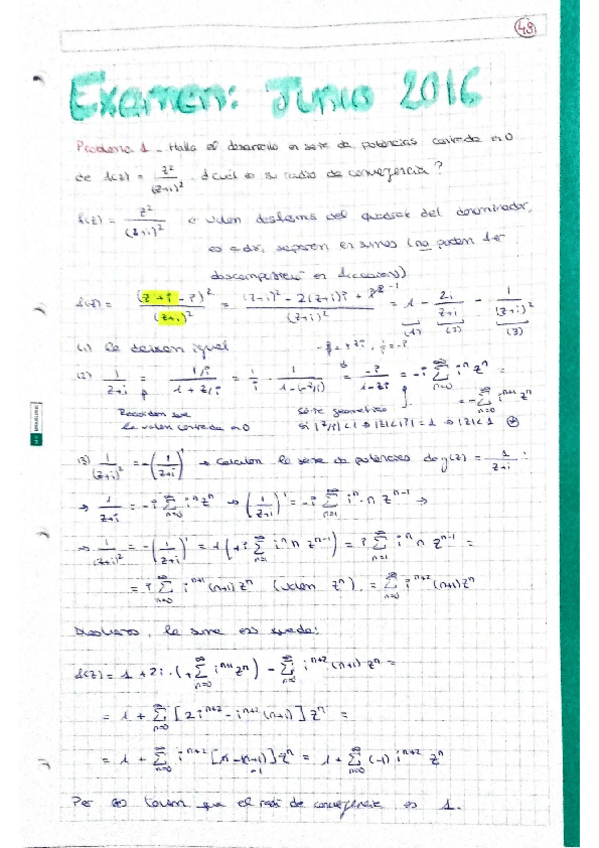 49
Examen: Junio 2016
Problema 1.- Halla el desarrollo en serie de potencias centrada en 0
de f(z) = z²/(z+i)². ¿Cuál es su radio de convergencia?
f(z) = z²/(z+i)² valen del del denominador,
es decir, separen en sumas (no pueden
en fracciones)
f(z) = (z+i-i)²/(z+i)² = ((z+i)² - 2(z+i)i + i²)/(z+i)² = 1 - 2i/(z+i) - 1/(z+i)²
(1) (2) (3)
(1) Se dejan igual
(2) 1/(z+i) = (1/i)/(1+z/i) = 1/i · 1/(1-(-z/i)) = -i/(1-zi) = -i ∑ₙ₌₀^∞ iⁿ zⁿ =
= -∑ₙ₌₀^∞ iⁿ⁺¹ zⁿ
Recuerden que
la centrada en 0
serie geométrica
si |z/i|<1 → |z|<|i| = 1 → |z|<1
(3) 1/(z+i)² = -(1/(z+i))' → Calculen la serie de potencias de g(z) = 1/(z+i):
→ 1/(z+i) = -i ∑ₙ₌₀^∞ iⁿ zⁿ → (1/(z+i))' = -i ∑ₙ₌₁^∞ iⁿ · n zⁿ⁻¹ →
→ 1/(z+i)² = -(1/(z+i))' = +(+i ∑ₙ₌₁^∞ iⁿ n zⁿ⁻¹) = i ∑ₙ₌₁^∞ iⁿ n zⁿ⁻¹ =
= i ∑ₙ₌₀^∞ iⁿ⁺¹ (n+1) zⁿ (valen zⁿ) = ∑ₙ₌₀^∞ iⁿ⁺² (n+1) zⁿ
la suma queda:
f(z) = 1 + 2i · (+∑ₙ₌₀^∞ iⁿ⁺¹ zⁿ) - ∑ₙ₌₀^∞ iⁿ⁺² (n+1) zⁿ =
= 1 + ∑ₙ₌₀^∞ [2iⁿ⁺² - iⁿ⁺² (n+1)] zⁿ =
= 1 + ∑ₙ₌₀^∞ iⁿ⁺² zⁿ = 1 + ∑ₙ₌₀^∞ (-1) iⁿ⁺² zⁿ
Por que el radio de convergencia es 1.